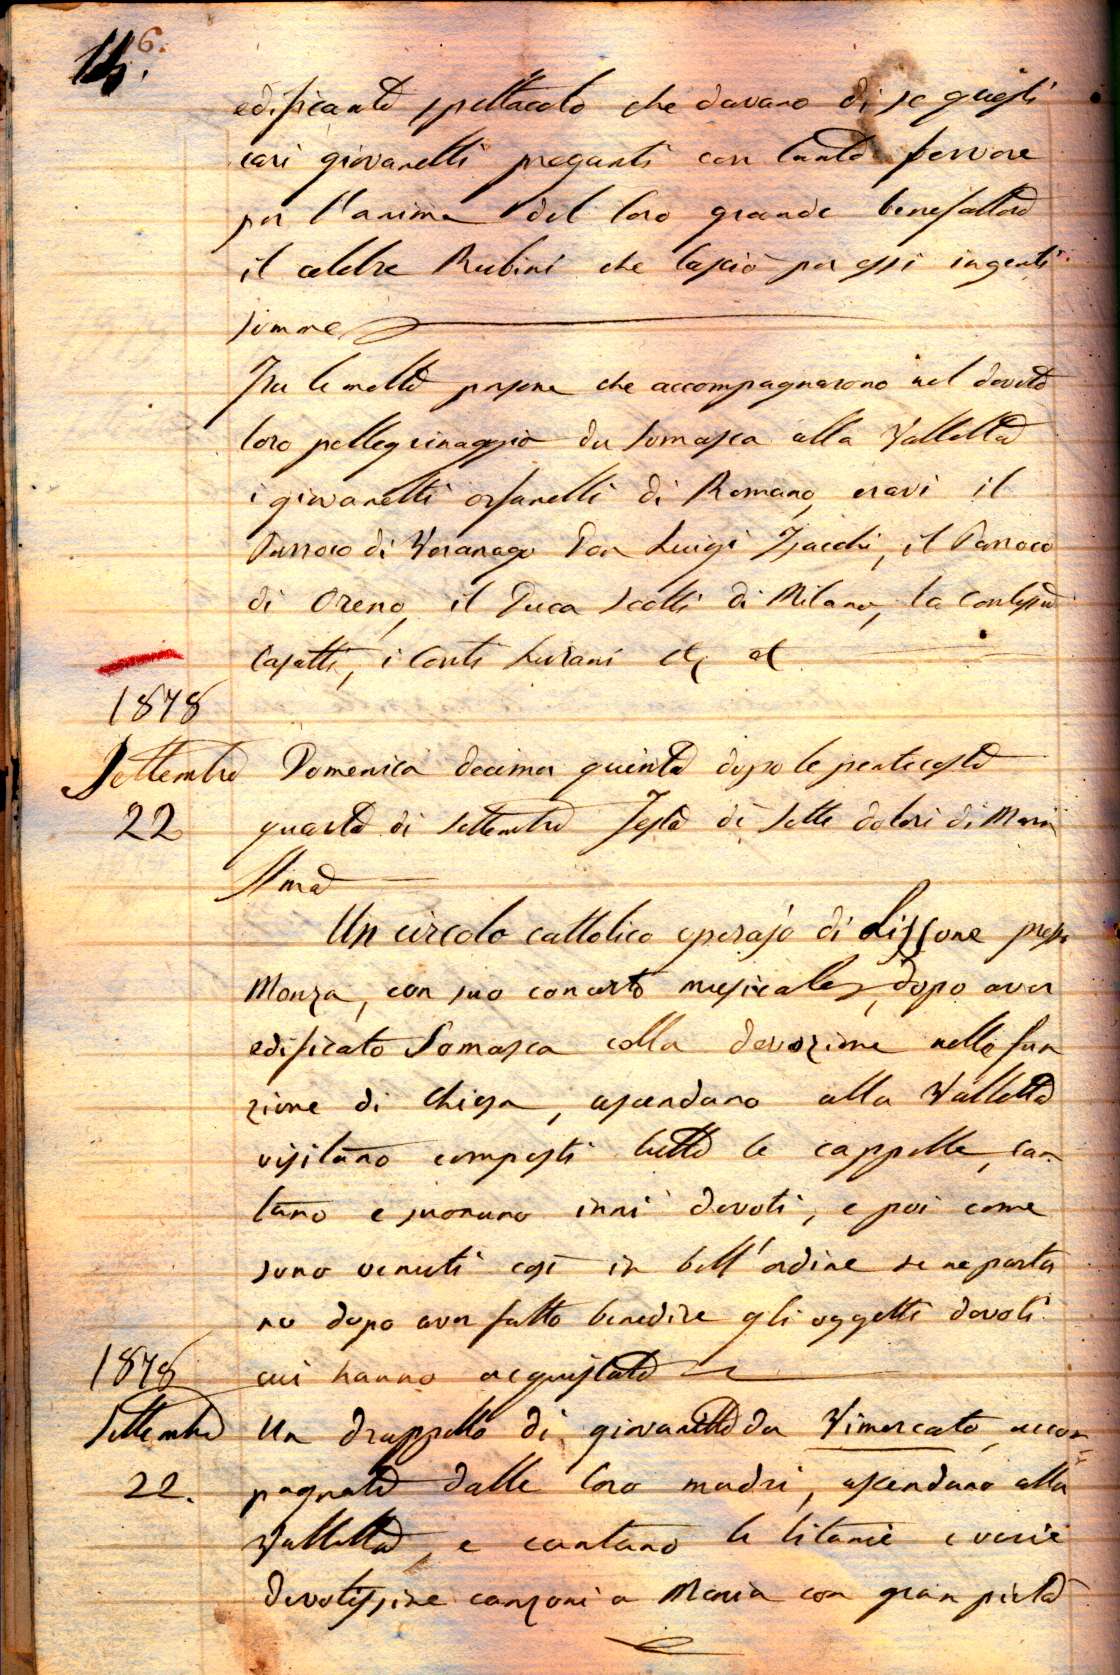 6.
edificante spettacolo che davano di se questi
cari giovanetti preganti con tanto fervore
per l'anima del loro grande benefattore
il celebre Rubini che lasciò per essi ingenti
somme
Fra le molte persone che accompagnarono nel devoto
loro pellegrinaggio da Somasca alla Valletta
i giovanetti orfanelli di Romano, eravi il
Parroco di Don Luigi il Parroco
di Oreno, il Duca Scotti di Milano, la Contessa
Casatti, i Conti Lurani etc etc
1878
Settembre Domenica decima quinta dopo le pentecoste
22 quarta di settembre Festa di sette dolori di Maria
SSma
Un circolo cattolico operajo di Lissone presso
Monza, con suo concerto musicale, dopo aver
edificato Somasca colla devozione nelle fun
zione di Chiesa, ascendano alla Valletta
visitano composti tutte le cappelle, can
tano e suonano inni devoti, e poi come
sono venuti così in bell'ordine se ne parta
no dopo aver fatto benedire gli oggetti devoti
1878 cui hanno acquistato
Settembre Un drappello di giovanette da Vimercate, accom
22. pagnate dalle loro madri, ascendano alla
Valletta, e cantano le litanie e varie
devotissime canzoni a Maria con gran pietà